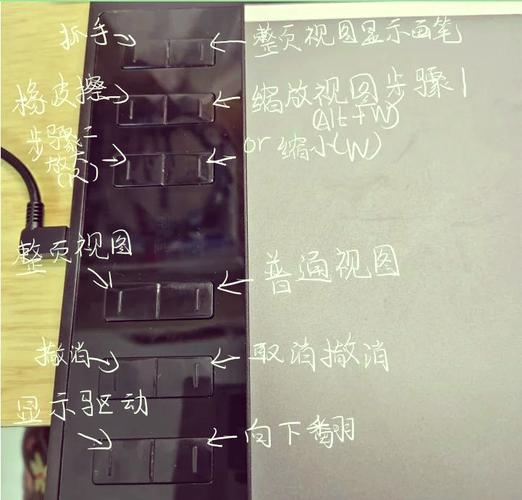 抓手
整页视图显示画笔
橡皮擦
缩放视图步骤1
(Alt+W)
步骤二
放大
or缩小(W)
整页视图
普通视图
撤消
取消撤消
显示驱动
向下翻